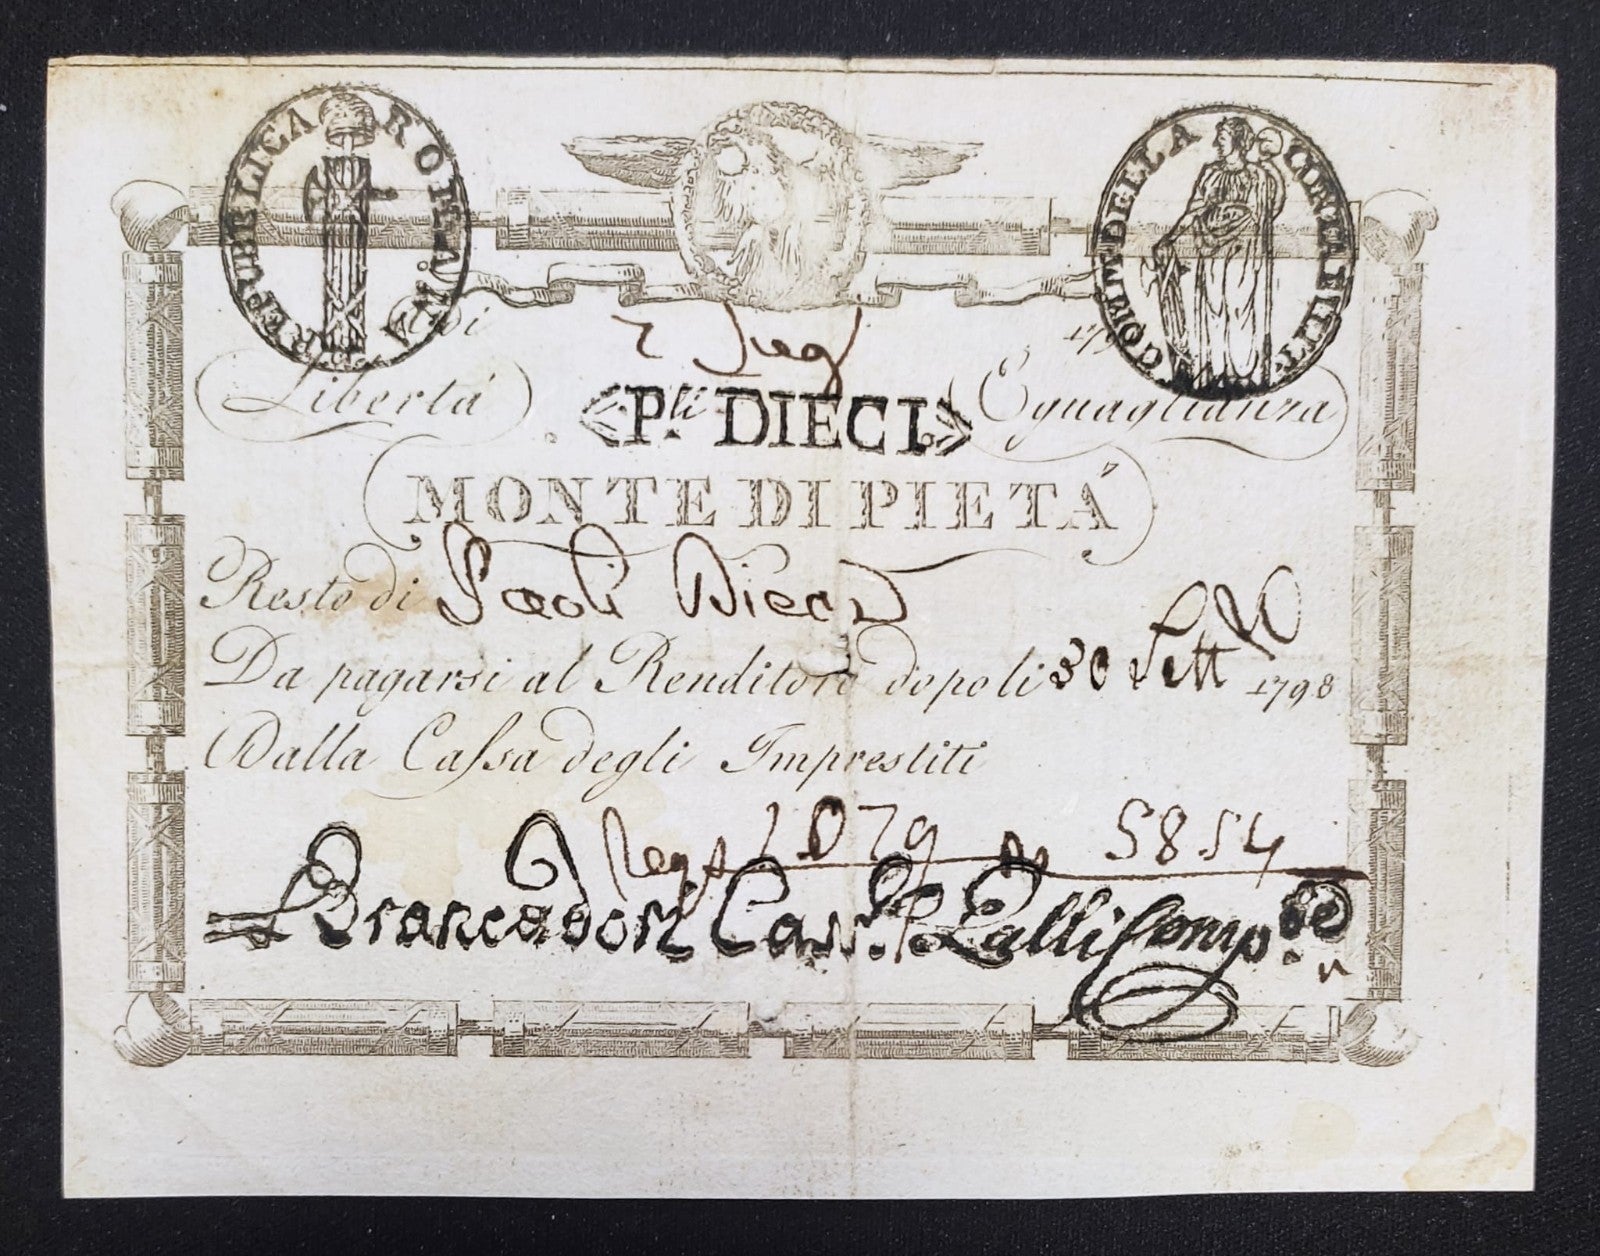 REPUBBLICA ROMANA
COM: DELLA CARTA
2 Lugl
Libertá
P.li DIECI
Eguaglianza
MONTE DI PIETÁ
Resto di Paoli Dieci
Da pagarsi al Renditore dopo li 30 Sett 1798
Dalla Caſsa degli Imprestiti
Reg. 1079 5854
Brancadori Cas.re P. Lalli Comp.